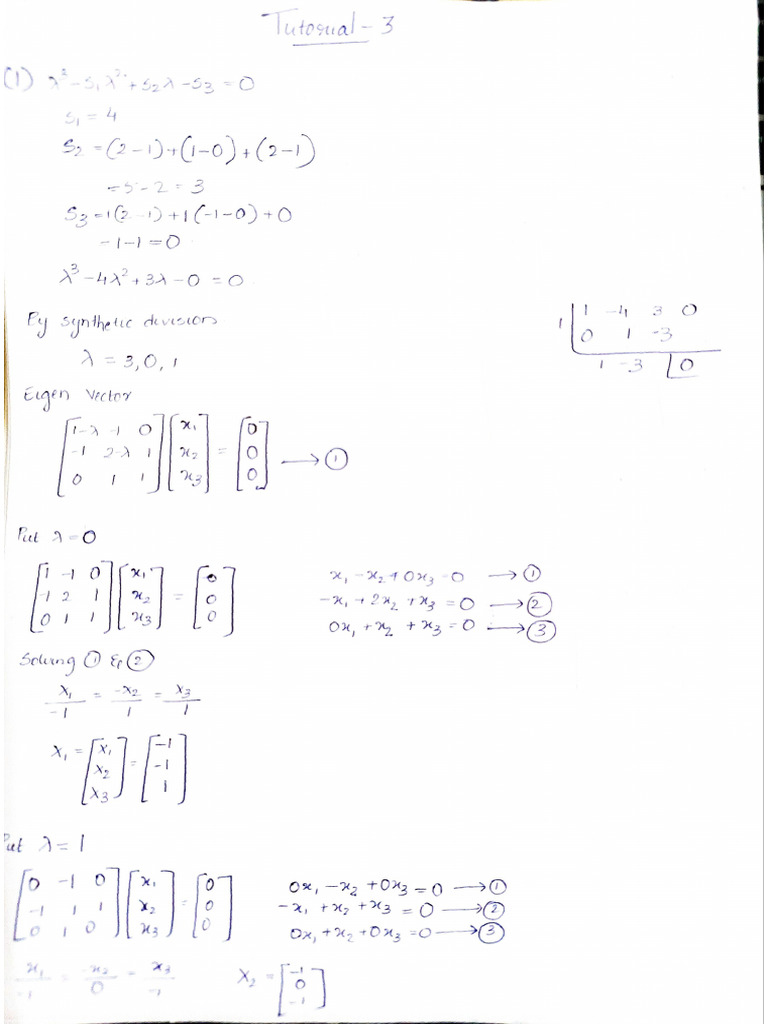 Tutorial - 3
(1) λ³ - S₁λ² + S₂λ - S₃ = 0
S₁ = 4
S₂ = (2-1)+(1-0)+(2-1)
= 5 - 2 = 3
S₃ = 1(2-1)+1(-1-0)+0
= 1-1 = 0
λ³ - 4λ² + 3λ - 0 = 0
By synthetic division
1 | 1 -4 3 0
0 1 -3
1 -3 | 0
λ = 3, 0, 1
Eigen Vector
[1-λ -1 0] [x₁] [0]
[-1 2-λ 1] [x₂] = [0] → ①
[0 1 1] [x₃] [0]
Put λ = 0
[1 -1 0] [x₁] [0] x₁ - x₂ + 0x₃ = 0 → ①
[-1 2 1] [x₂] = [0] -x₁ + 2x₂ + x₃ = 0 → ②
[0 1 1] [x₃] [0] 0x₁ + x₂ + x₃ = 0 → ③
Solving ① & ②
x₁/-1 = -x₂/1 = x₃/1
X₁ = [x₁] = [-1]
[x₂] [-1]
[x₃] [1]
Put λ = 1
[0 -1 0] [x₁] [0] 0x₁ - x₂ + 0x₃ = 0 → ①
[-1 1 1] [x₂] = [0] -x₁ + x₂ + x₃ = 0 → ②
[0 1 0] [x₃] [0] 0x₁ + x₂ + 0x₃ = 0 → ③
x₁/-1 = -x₂/0 = x₃/-1 X₂ = [-1]
[0]
[-1]